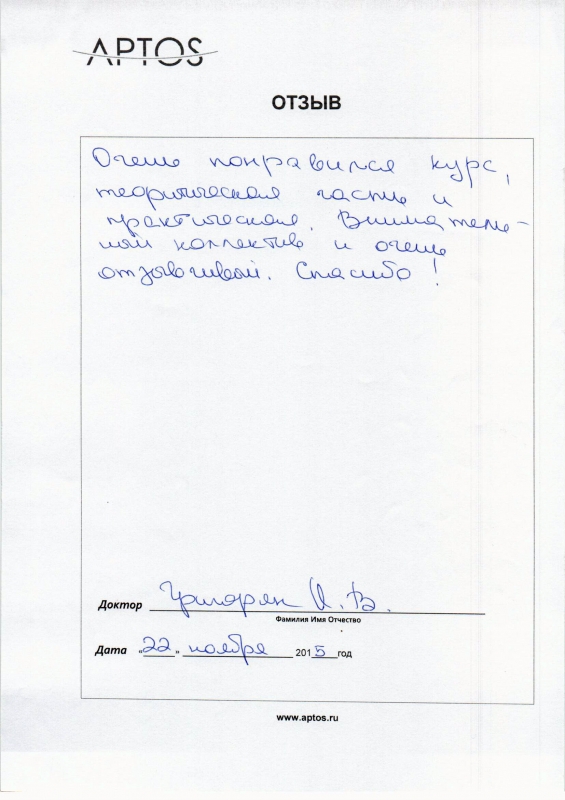 APTOS
ОТЗЫВ
Очень понравился курс,
теоритическая часть и
практическая. Вниматель-
ный коллектив и очень
отзывчивый. Спасибо!
Доктор Григорян И. В.
Фамилия Имя Отчество
Дата "22" ноября 2015 год
www.aptos.ru